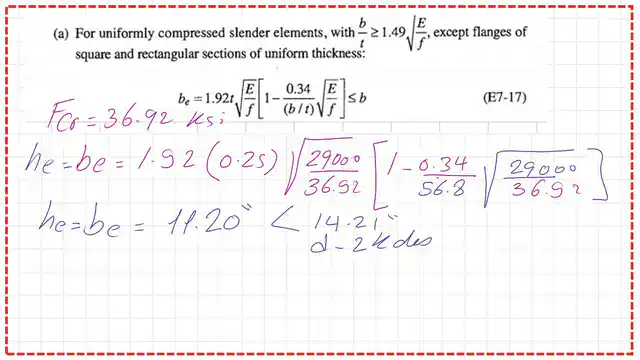 (a) For uniformly compressed slender elements, with b/t ≥ 1.49√(E/f), except flanges of
square and rectangular sections of uniform thickness:
bₑ = 1.92t√(E/f)[1 − 0.34/(b/t) √(E/f)] ≤ b (E7-17)
Fcr = 36.92 ksi
he = be = 1.92 (0.25) √(29000/36.92) [1 − 0.34/56.8 √(29000/36.92)]
he = be = 11.20" < 14.21"
d - 2k des